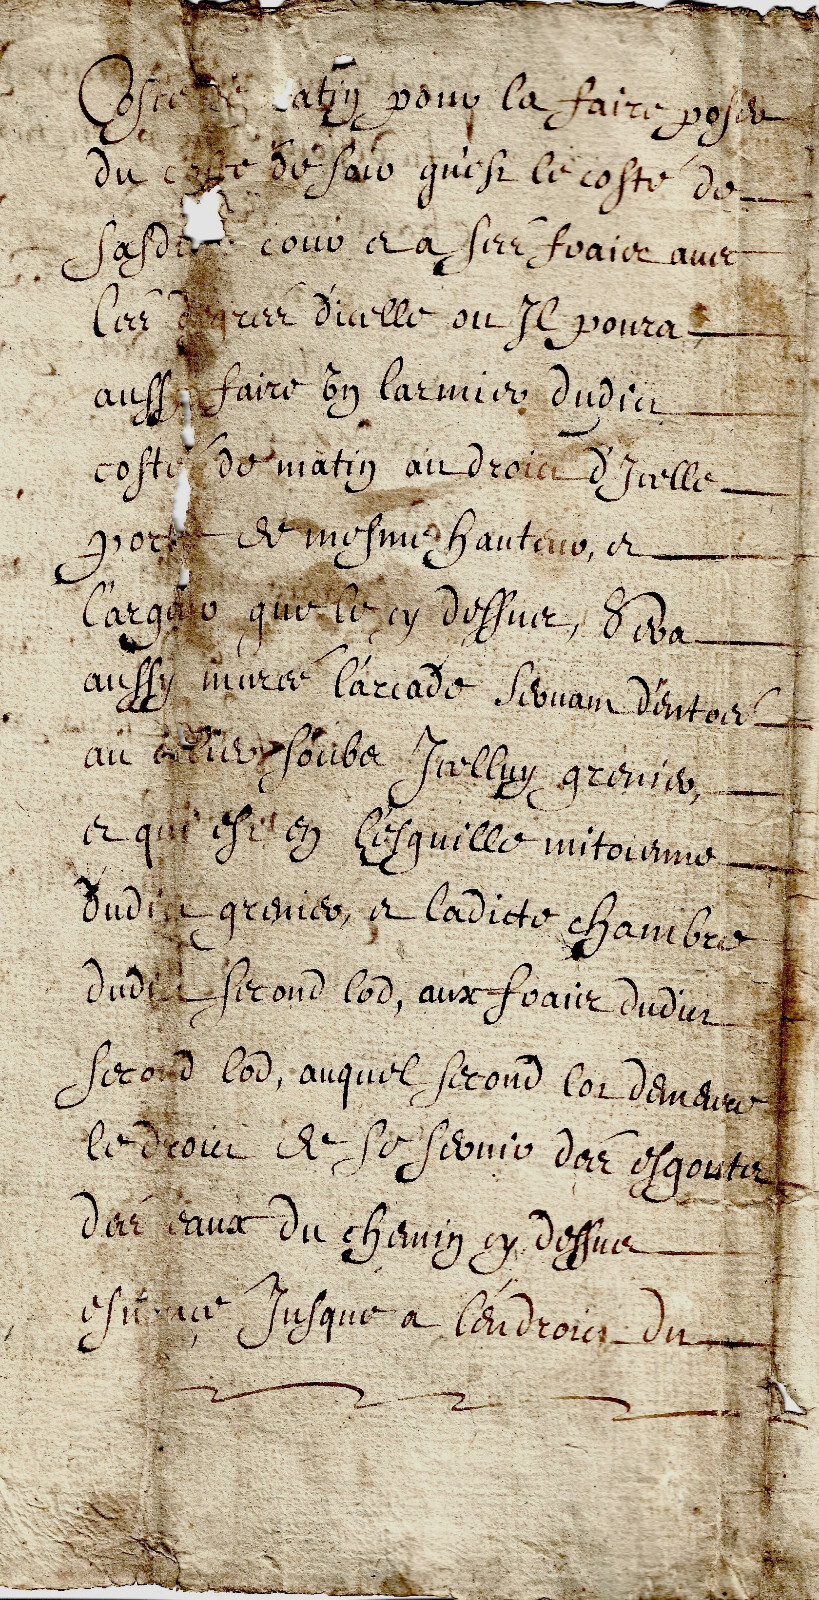 Costé de matin pour la faire poser
du costé de soir qu'est le costé de
sasdite cour et a ses fraict avec
les degres d'icelle ou Il poura
aussy faire un larmier dudict
costé de matin au droict d'Icelle
porte de mesme hauteur, et
largeur que le cy dessus, Sera
aussy murée l'arcade servant d'entrée
au cellier soubz Icelluy grenier,
et qui est en l'esguille mitoienne
dudict grenier, et ladicte chambre
dudict second lod, aux fraict dudict
second lod, auquel second lot demeure
le droict de se servir des esgoutz
des eaux du chemin cy dessus
Jusque a l'endroict du